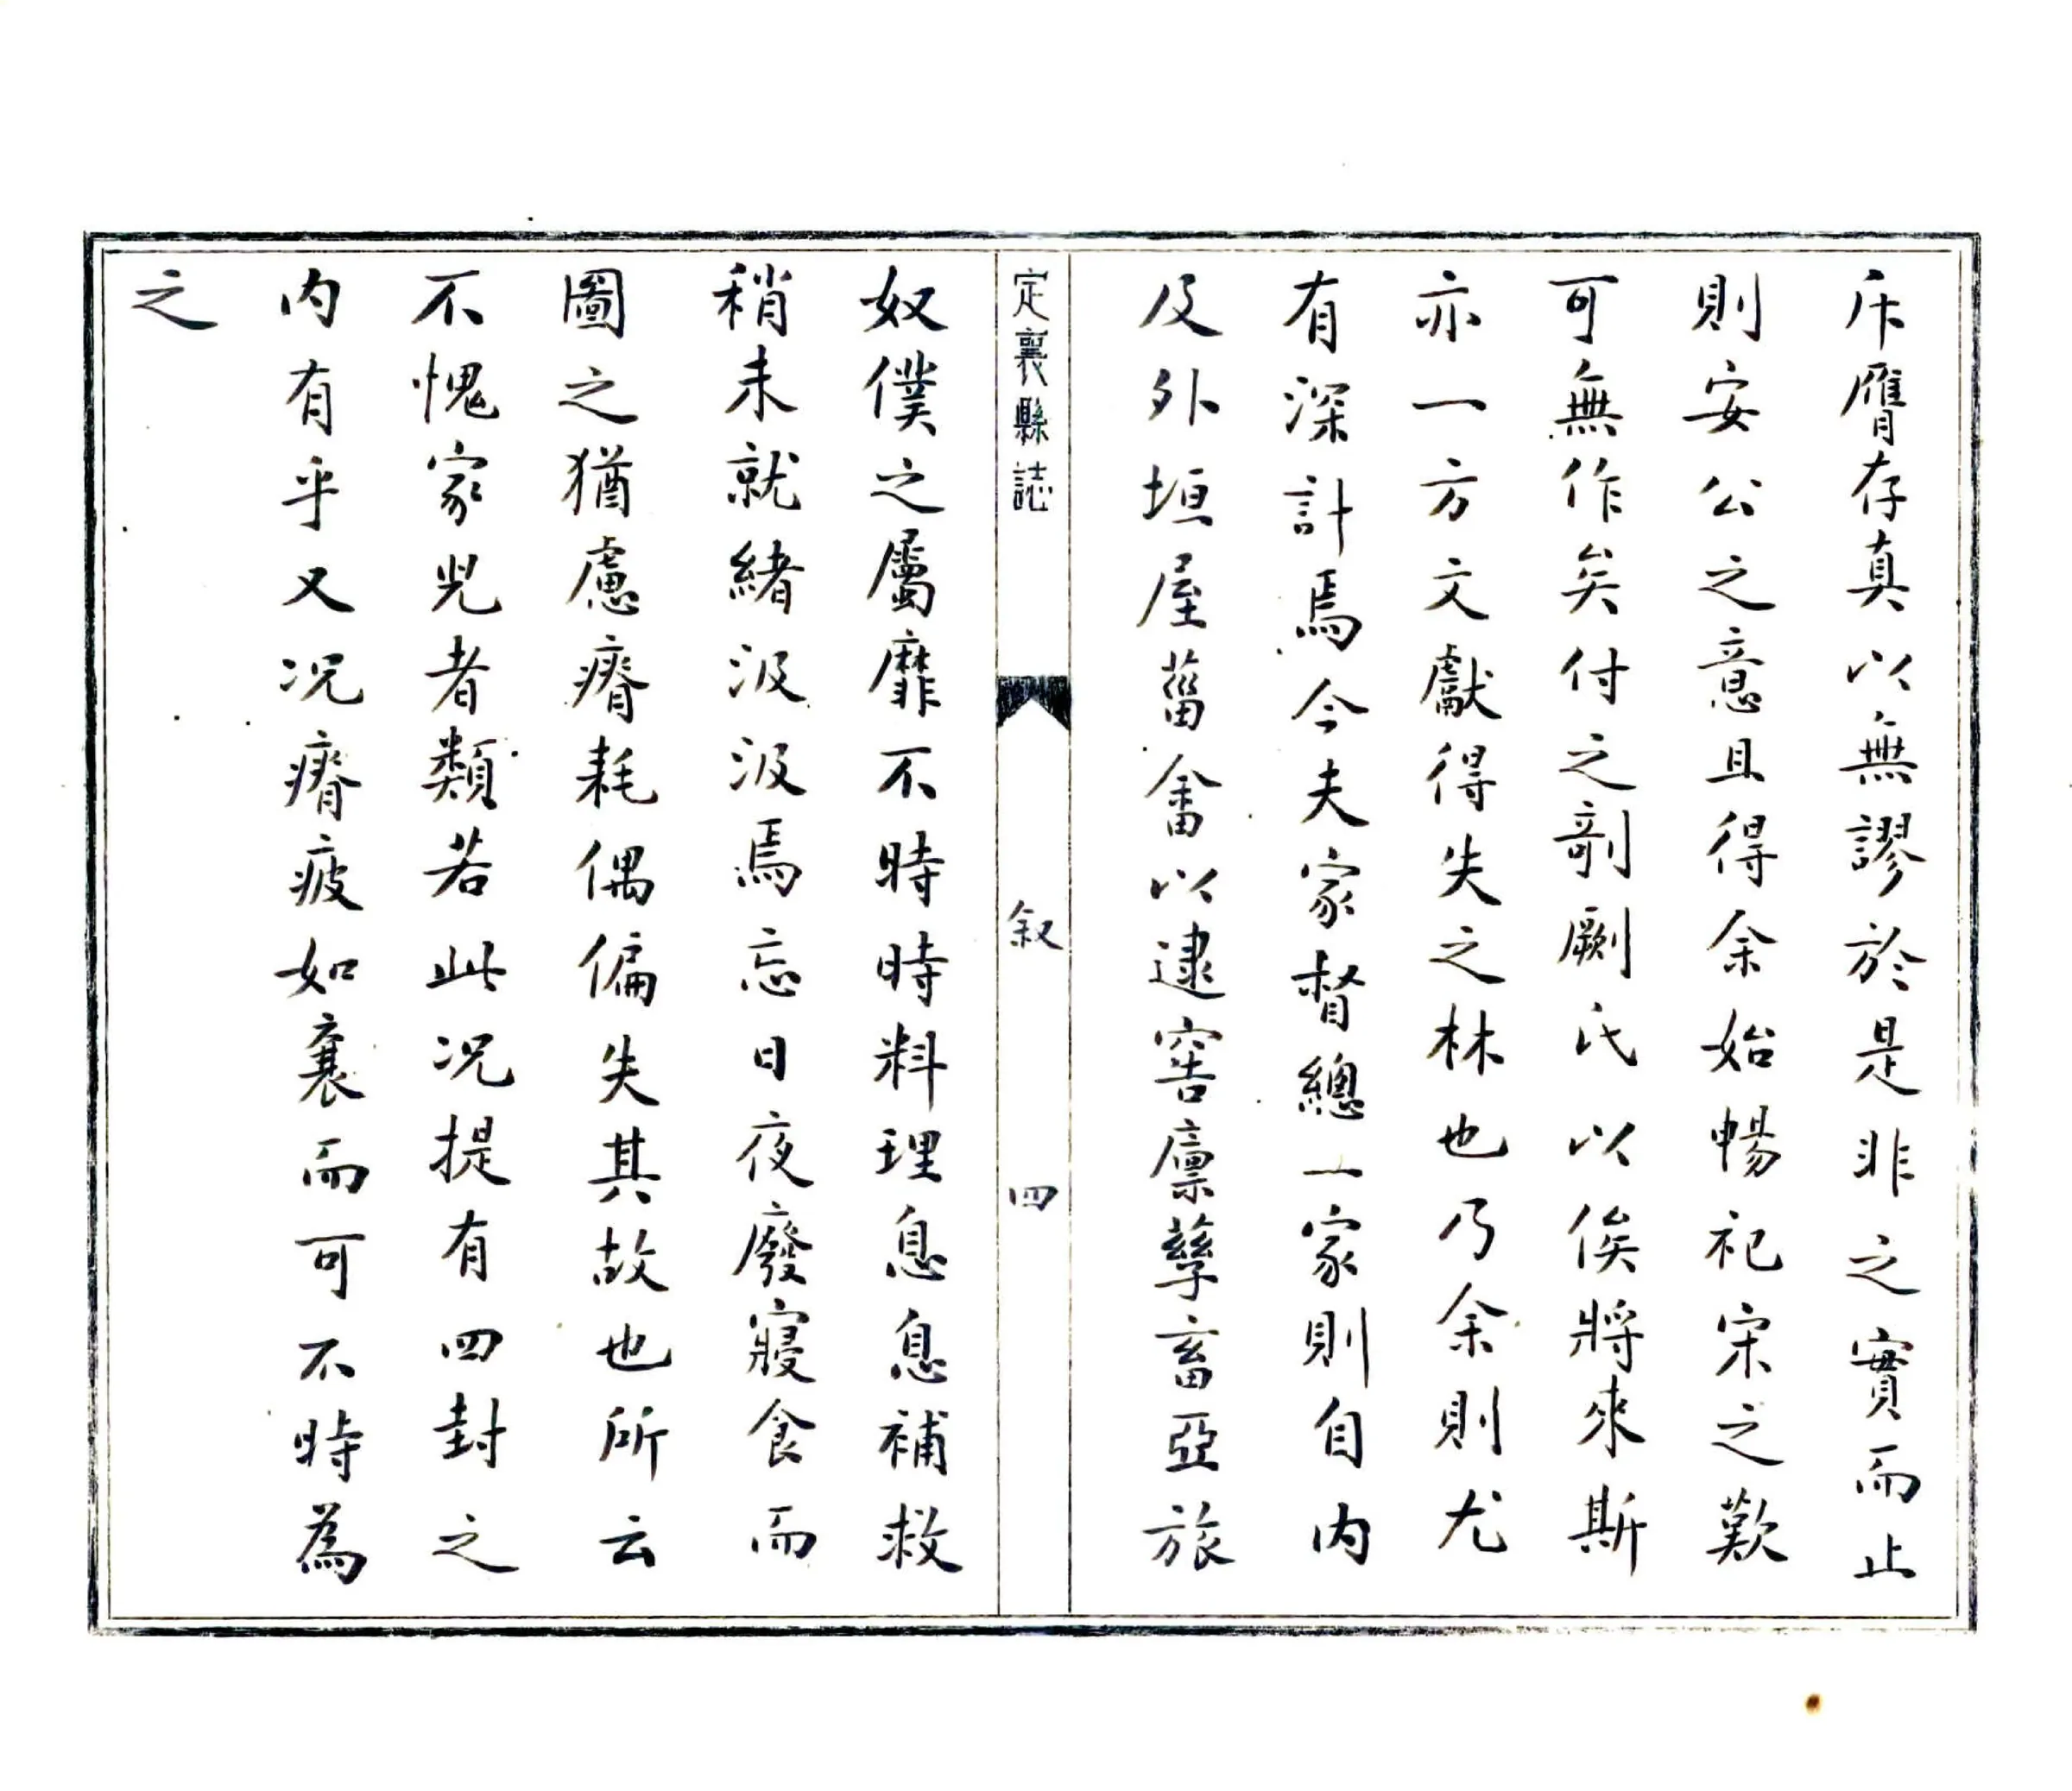 斥贗存真以無謬於是非之實而止
則安公之意且得余始暢祀宋之歎
可無作矣付之剞劂氏以俟將來斯
亦一方文獻得失之林也乃余則尤
有深計焉今夫家督總一家則自内
及外垣屋菑畬以逮窖廪孳畜亞旅
定襄縣誌
叙
四
奴僕之屬靡不時時料理息息補救
稍未就緒汲汲焉忘日夜廢寢食而
圖之猶慮瘠耗偶偏失其故也所云
不愧家児者類若此况提有四封之
内有乎又况瘠疲如襄而可不時為
之